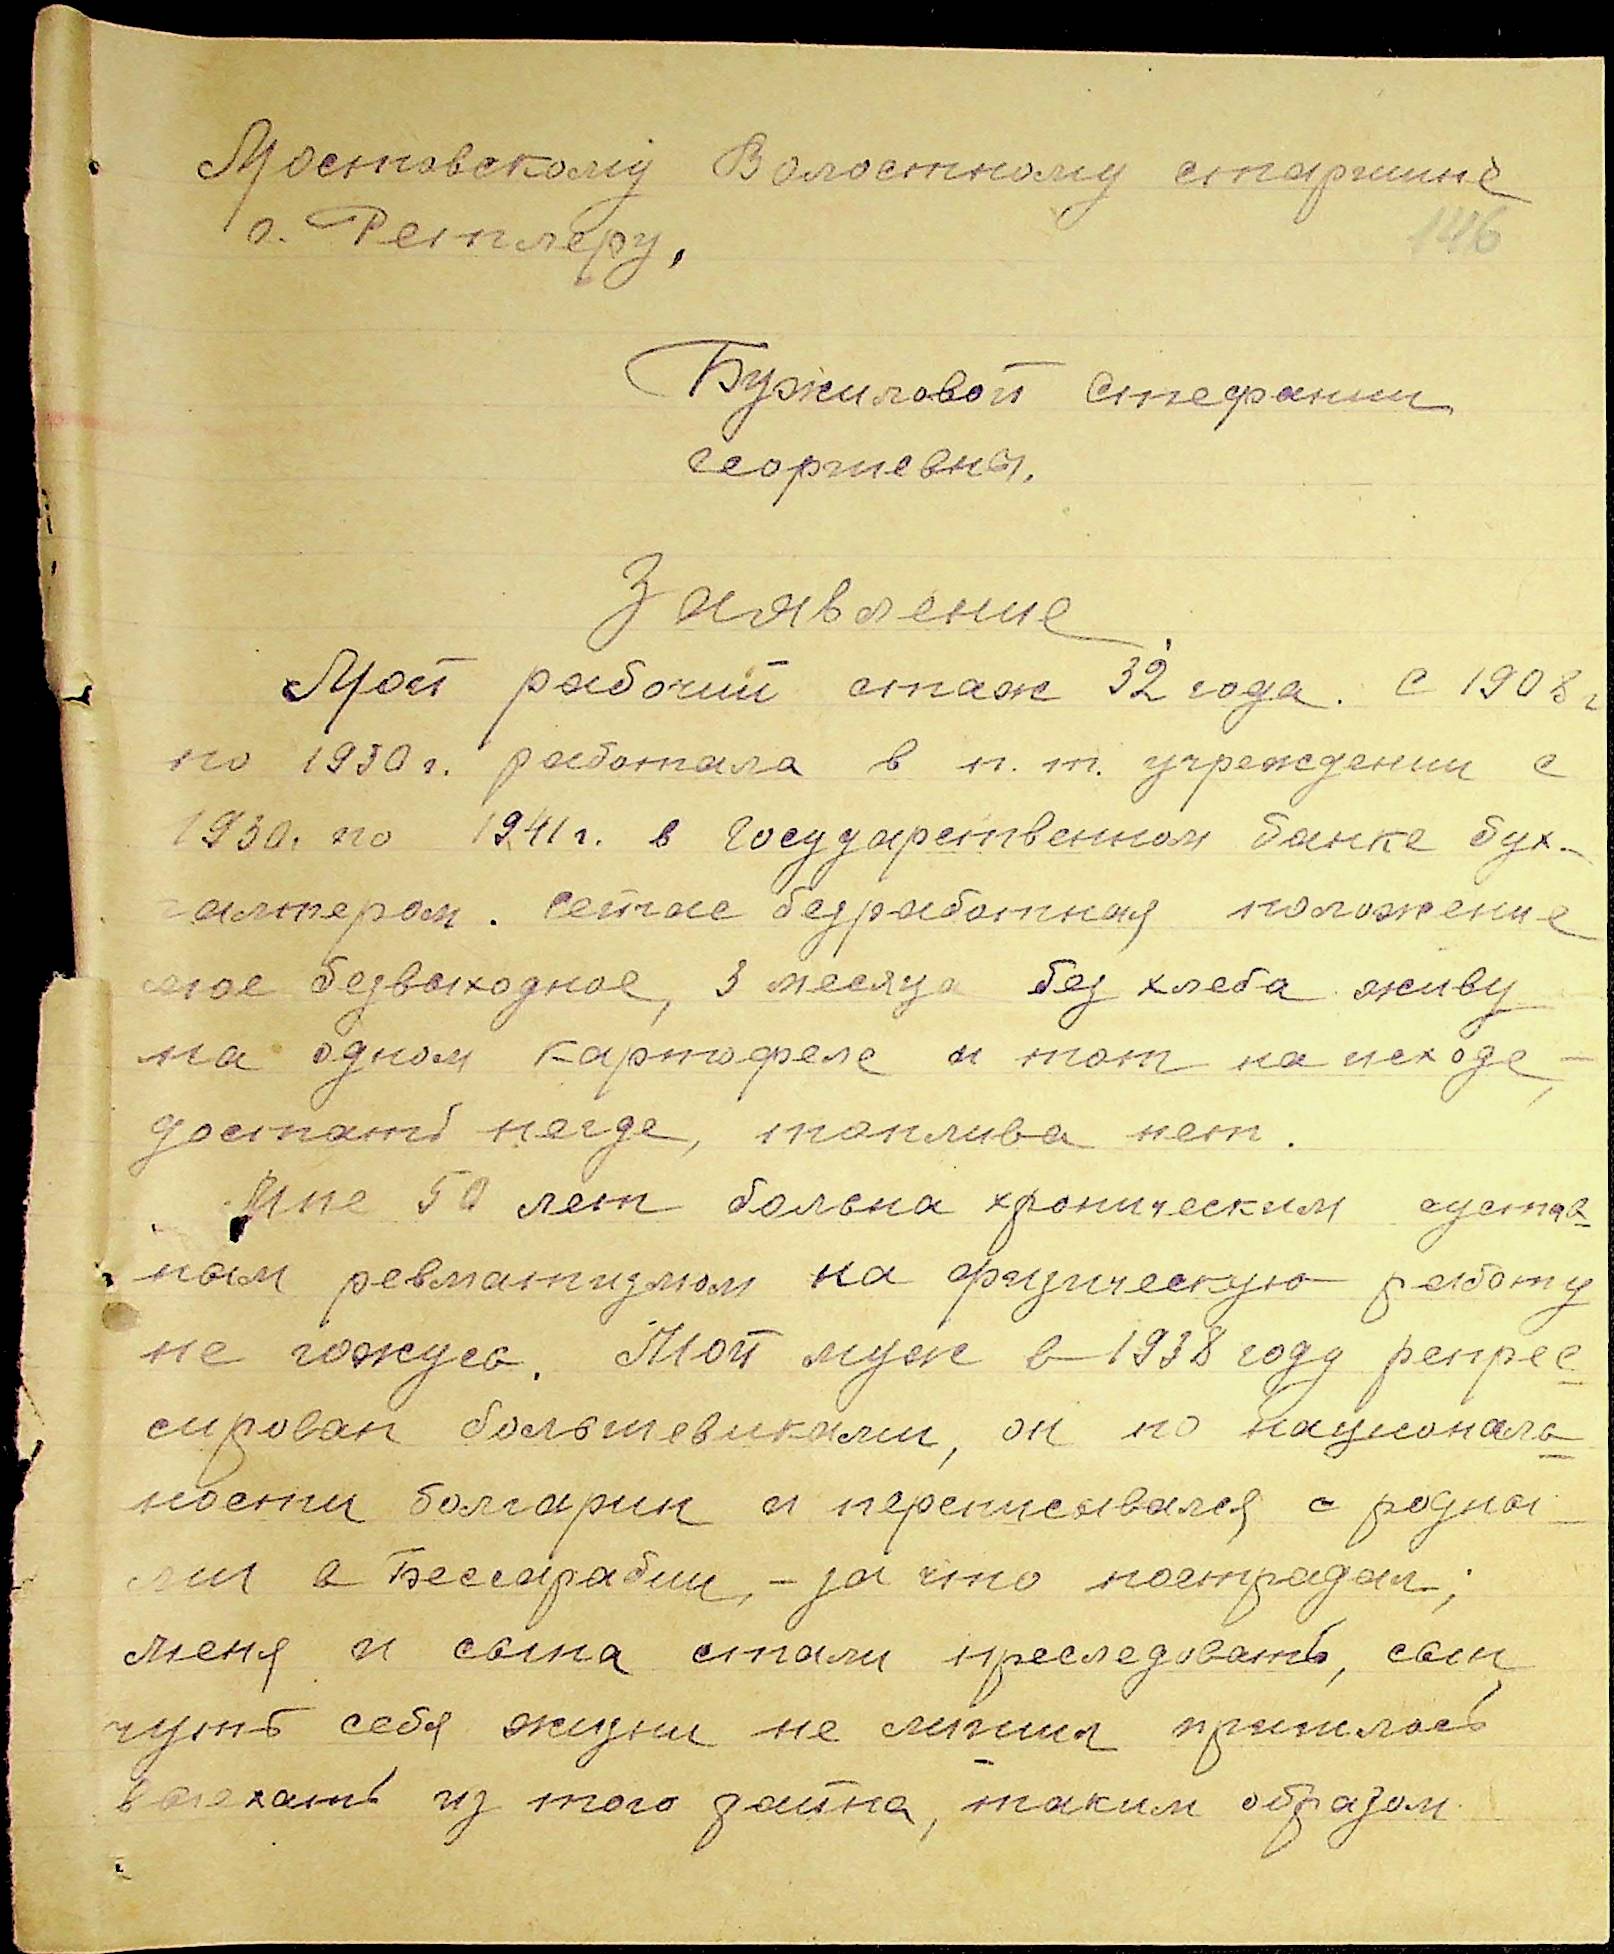 Мостовскому Волостному старшине
146
г. Ретлеру,
Бужиловой Стефании
Георгиевны.
Заявление
Мой рабочий стаж 32 года. С 1908 г
по 1930 г. работала в п. т. учреждении с
1930. по 1941 г. в Государственном банке бух-
галтером. Сейчас безработная положение
мое безвыходное, 3 месяца без хлеба живу
на одном картофеле и тот на исходе, -
достать негде, топлива нет.
Мне 50 лет больна хроническим сустав-
ным ревматизмом на физическую работу
не гожусь. Мой муж в 1938 году репрес-
сирован большевиками, он по националь-
ности болгарин и переписывался с родны-
ми в Бессарабии, - за что пострадал;
меня и сына стали преследовать, сын
чуть себя жизни не лишил пришлось
выехать из того района, таким образом